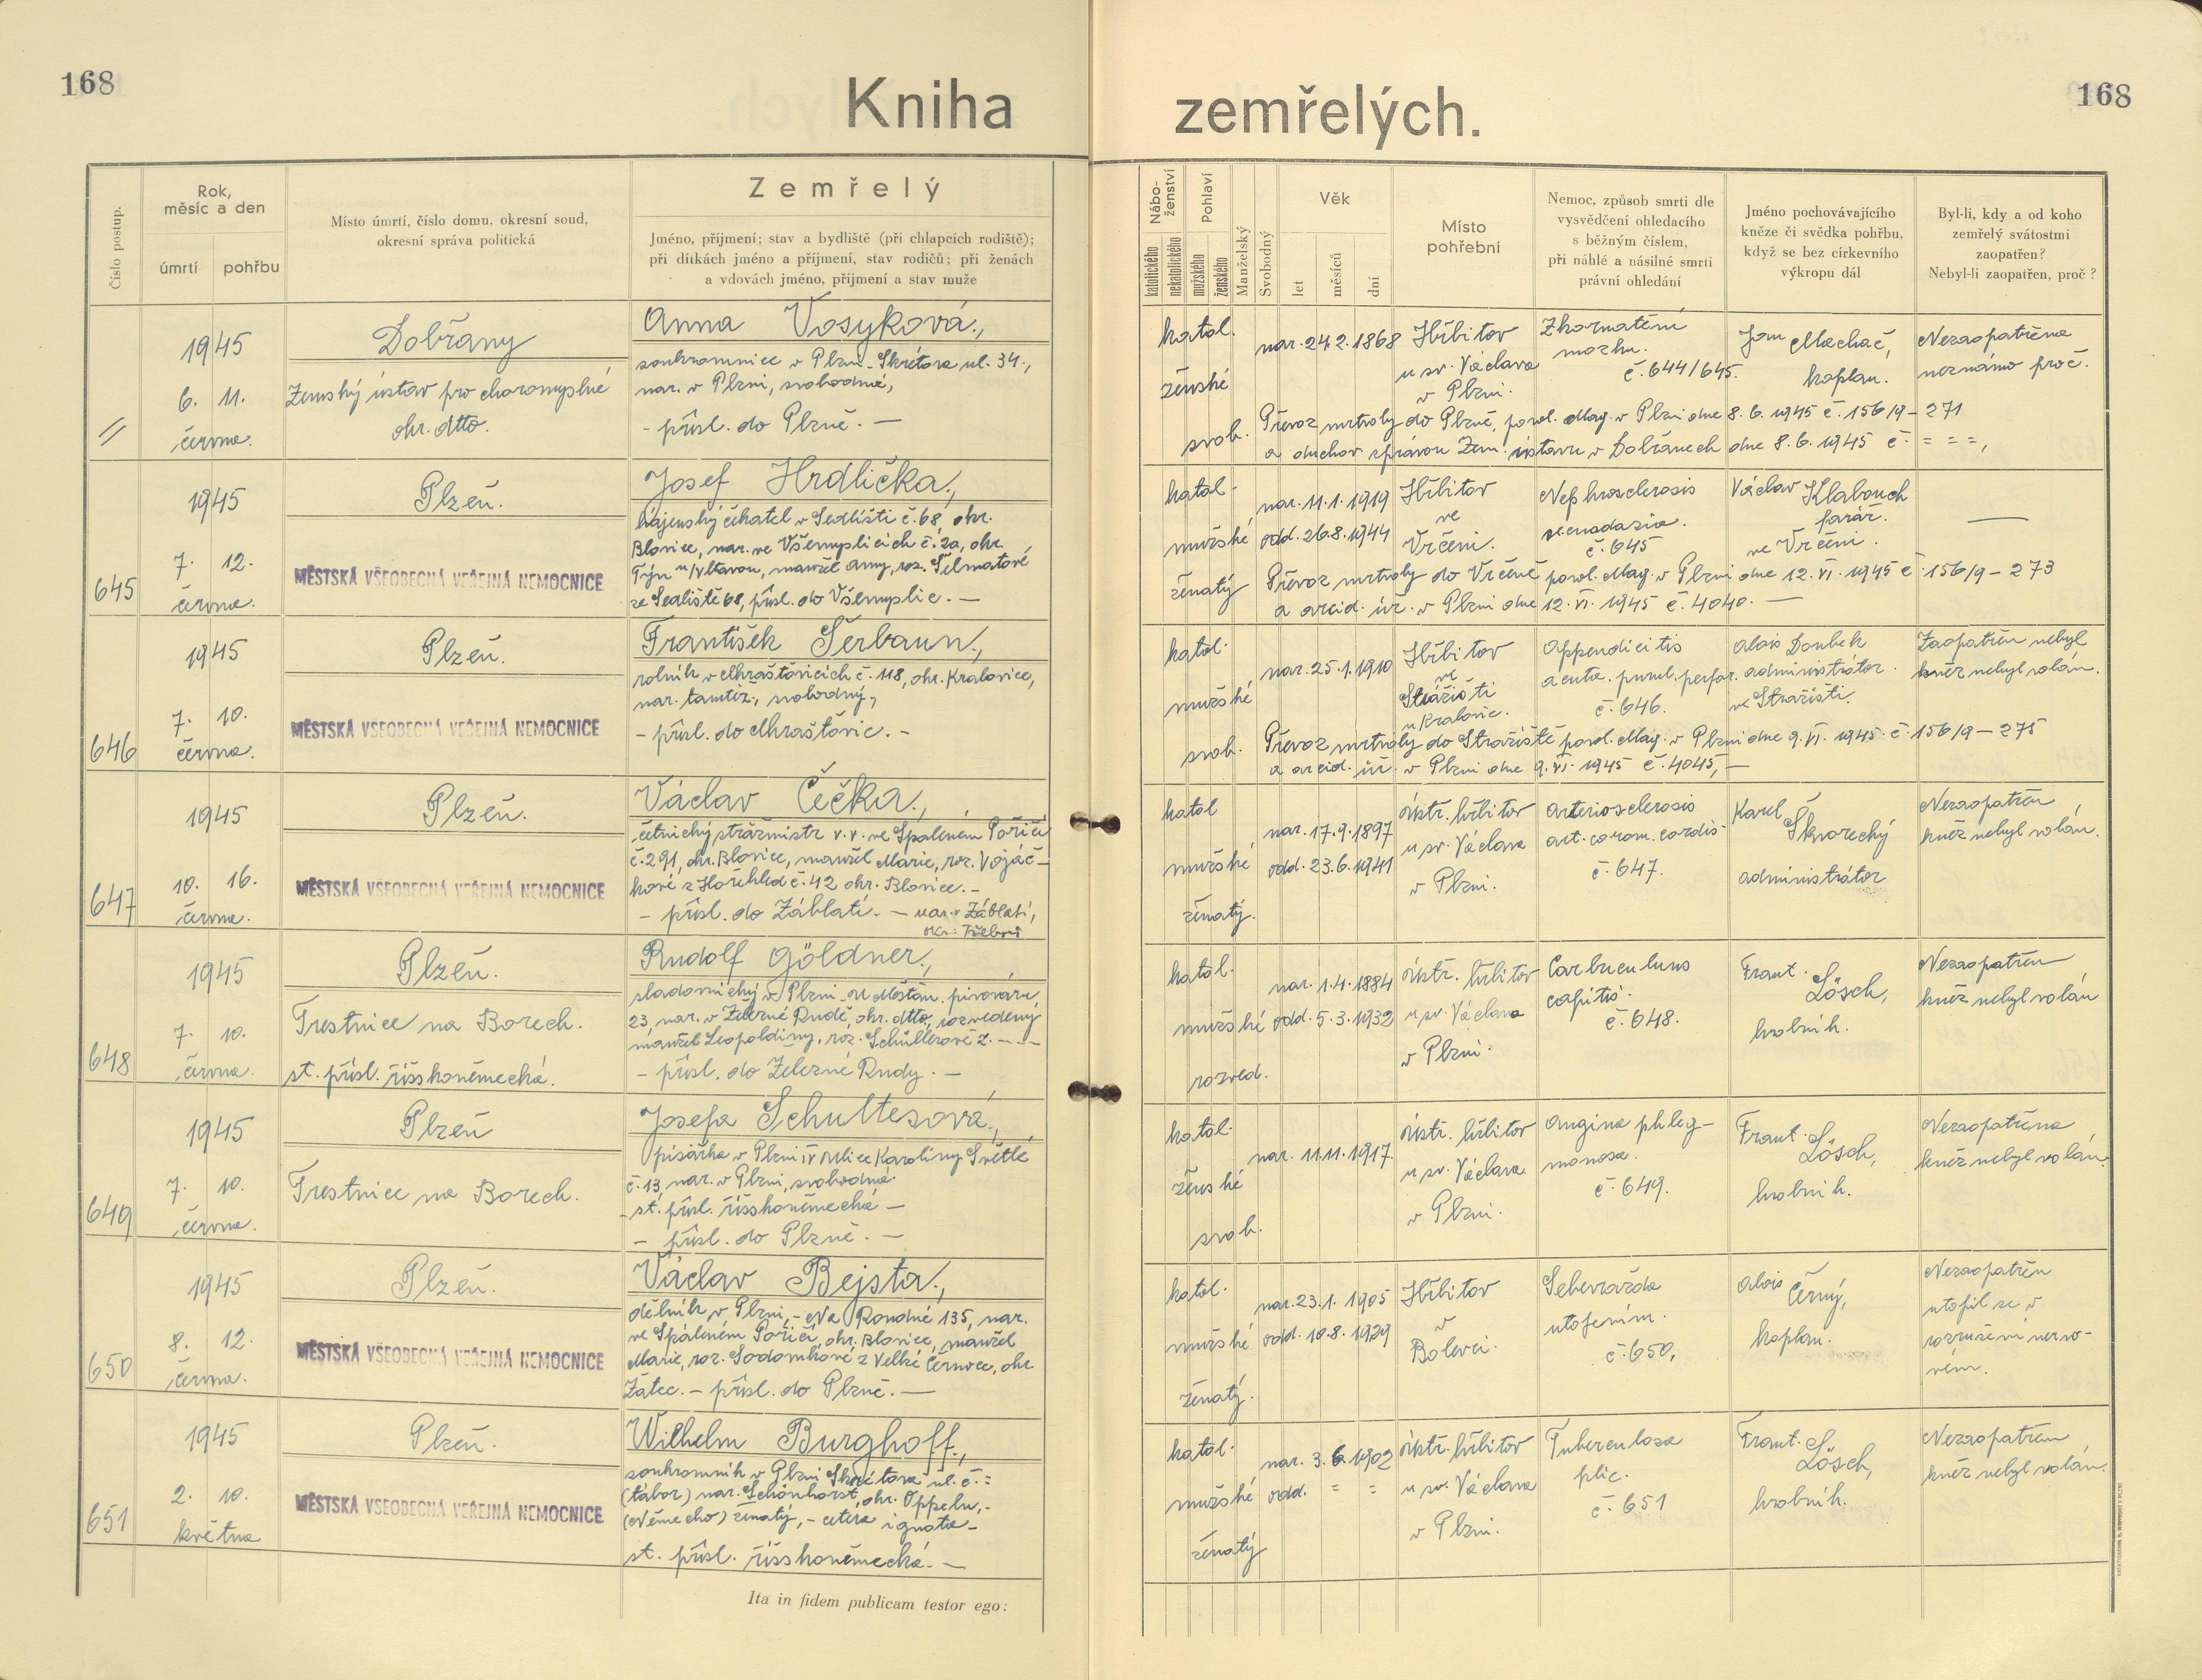 168
Kniha
zemřelých.
168
Číslo postup.
Rok,
měsíc a den
úmrtí
pohřbu
Místo úmrtí, číslo domu, okresní soud,
okresní správa politická
Zemřelý
Jméno, příjmení; stav a bydliště (při chlapcích rodiště);
při dítkách jméno a příjmení, stav rodičů; při ženách
a vdovách jméno, příjmení a stav muže
Nábo-
ženství
katolického
nekatolického
Pohlaví
mužského
ženského
Manželský
Svobodný
Věk
let
měsíců
dní
Místo
pohřební
Nemoc, způsob smrti dle
vysvědčení ohledacího
s běžným číslem,
při náhlé a násilné smrti
právní ohledání
Jméno pochovávajícího
kněze či svědka pohřbu,
když se bez církevního
výkropu dál
Byl-li, kdy a od koho
zemřelý svátostmi
zaopatřen?
Nebyl-li zaopatřen, proč?
1945
6. 11.
června.
Dobřany
Zemský ústav pro choromyslné
okr. dtto.
Anna Vosyková,
soukromnice v Plzni - Škrétova ul. 34.,
nar. v Plzni, svobodná,
- přísl. do Plzně. -
katol.
ženské
svob.
nar. 24.2.1868
Hřbitov
u sv. Václava
v Plzni.
Zkornatění
mozku.
č. 644/645.
Jan Machač,
kaplan.
Nezaopatřena
neznámo proč.
Převoz mrtvoly do Plzně, povol. Mag. v Plzni dne 8. 6. 1945 č. 156/9 - 271
a duchov. správou Zem. ústavu v Dobřanech dne 8. 6. 1945 č. = = =,
645
1945
7. 12.
června.
Plzeň.
MĚSTSKÁ VŠEOBECNÁ VEŘEJNÁ NEMOCNICE
Josef Hrdlička,
hájenský čekatel v Sedlišti č. 68, okr.
Blovice, nar. ve Všemyslicích č. 2a, okr.
Týn n/Vltavou, manžel Anny, roz.
ze Sedliště 68, přísl. do Všemyslic. -
katol.
mužské
ženatý
nar. 11.1.1919
odd. 26.8.1944
Hřbitov
ve
Vrčeni.
Nephrosclerosis
č. 645
Václav Klabouch
farář.
ve Vrčeni.
Převoz mrtvoly do Vrčeně povol. Mag. v Plzni dne 12. VI. 1945 č. 156/9 - 273
a arcid. úř. v Plzni dne 12. VI. 1945 č. 4040. -
646
1945
7. 10.
června.
Plzeň.
MĚSTSKÁ VŠEOBECNÁ VEŘEJNÁ NEMOCNICE
František Šerbaum,
rolník v Mraštovicích č. 118, okr. Kralovice,
nar. tamtéž, svobodný,
- přísl. do Mraštovic. -
katol.
mužské
svob.
nar. 25.1.1910
Hřbitov
ve
Strážišti
u Kralovic.
Appendicitis
acuta. purul. perfor.
č. 646.
Alois Doubek
administrátor.
ve Stražišti.
Zaopatřen nebyl
kněz nebyl volán.
Převoz mrtvoly do Stražiště povol. Mag. v Plzni dne 9. VI. 1945 č. 156/9 - 275
a arcid. úř. v Plzni dne 9. VI. 1945 č. 4045, -
647
1945
10. 16.
června.
Plzeň.
MĚSTSKÁ VŠEOBECNÁ VEŘEJNÁ NEMOCNICE
Václav Čečka,
četnický strážmistr v. v. ve Spáleném Poříčí
č. 291, okr. Blovice, manžel Marie, roz. Vojáč-
kové z Hořehled č. 42 okr. Blovice. -
- přísl. do Záblatí. - nar. v Záblatí,
okr. Třeboň
katol
mužské
ženatý.
nar. 17.9.1897
odd. 23.6.1941
ústř. hřbitov
u sv. Václava
v Plzni.
Arteriosclerosis
art. coron. cordis.
č. 647.
Karel Škvorecký
administrátor
Nezaopatřen
kněz nebyl volán.
648
1945
7. 10.
června.
Plzeň.
Trestnice na Borech.
st. přísl. říšskoněmecká.
Rudolf Göldner,
sladovnický v Plzni - U Měšťan. pivovaru,
23, nar. v Železné Rudě, okr. dtto, rozvedený
manžel Leopoldiny, roz. Schüllerové z. - -
- přísl. do Železné Rudy. -
katol.
mužské
rozved.
nar. 1.4.1884
odd. 5.3.1932
ústr. hřbitov
u sv. Václava
v Plzni.
Carbuculus
capitis.
č. 648.
Frant. Lösch,
hrobník.
Nezaopatřen
kněz nebyl volán
649
1945
7. 10.
června.
Plzeň
Trestnice na Borech.
Josefa Schultesová,
písařka v Plzni IV Ulice Karoliny Světlé
č. 13 nar. v Plzni, svobodná.
- st. přísl. říšskoněmecká -
- přísl. do Plzně. -
katol.
ženské
svob.
nar. 11.11.1917.
ústr. hřbitov
u sv. Václava
v Plzni.
Angina phleg-
monosa.
č. 649.
Frant. Lösch,
hrobník.
Nezaopatřena
kněz nebyl volán.
650
1945
8. 12.
června.
Plzeň.
MĚSTSKÁ VŠEOBECNÁ VEŘEJNÁ NEMOCNICE
Václav Bejsta,
dělník v Plzni, - Na Roudné 135, nar.
ve Spáleném Poříčí, okr. Blovice, manžel
Marie, roz. Sodomkové z Velké Černoce, okr.
Žatec. - přísl. do Plzně. -
katol.
mužské
ženatý.
nar. 23.1. 1905
odd. 10.8.1929
Hřbitov
v
Bolevci.
Sebevražda
utopením.
č. 650,
Alois Černý,
kaplan.
Nezaopatřen
utopil se v
rozrušení nervo-
vém.
651
1945
2. 10.
května
Plzeň.
MĚSTSKÁ VŠEOBECNÁ VEŘEJNÁ NEMOCNICE
Wilhelm Burghoff,
soukromník v Plzni Skrétova ul. č. =
(tábor) nar. Schönhorst, okr. Oppeln, -
(Německo) ženatý, - cetera ignota -
st. přísl. říšskoněmecká. -
katol.
mužské
ženatý
nar. 3. 6. 1902
odd. = =
ústr. hřbitov
u sv. Václava
v Plzni.
Tuberculosa
plic.
č. 651
Frant. Lösch,
hrobník.
Nezaopatřen
kněz nebyl volán.
Ita in fidem publicam testor ego: